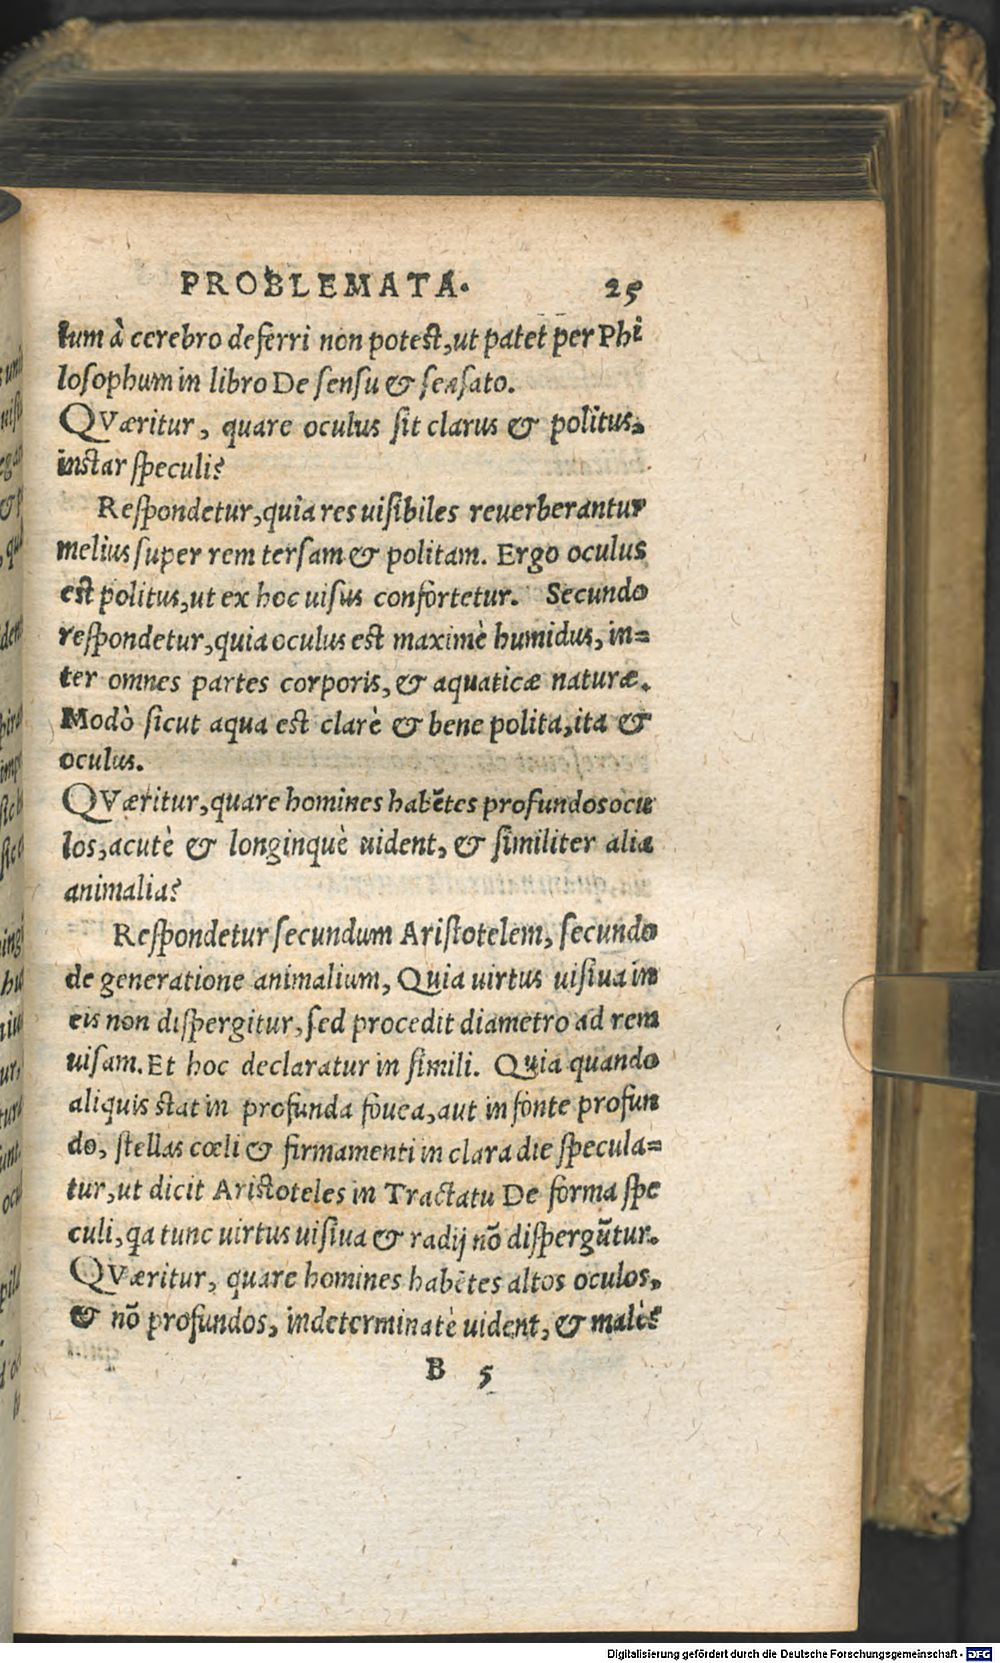 PROBLEMATA. 25
tum à cerebro deferri non potest, ut patet per Phi
losophum in libro De sensu & sensato.
QVæritur, quare oculus sit clarus & politus,
instar speculi?
Respondetur, quia res uisibiles reuerberantur
melius super rem tersam & politam. Ergo oculus
est politus, ut ex hoc uisus confortetur. Secundo
respondetur, quia oculus est maximè humidus, in=
ter omnes partes corporis, & aquaticæ naturæ.
Modò sicut aqua est clarè & bene polita, ita &
oculus.
QVæritur, quare homines habẽtes profundos ocu
los, acutè & longinquè uident, & similiter alia
animalia?
Respondetur secundum Aristotelem, secundo
de generatione animalium, Quia uirtus uisiua in
eis non dispergitur, sed procedit diametro ad rem
uisam. Et hoc declaratur in simili. Quia quando
aliquis stat in profunda fouea, aut in fonte profun
do, stellas cœli & firmamenti in clara die specula=
tur, ut dicit Aristoteles in Tractatu De forma spe
culi, qa tunc uirtus uisiua & radij nõ dispergũtur.
QVæritur, quare homines habẽtes altos oculos,
& nõ profundos, indeterminatè uident, & malè?
B 5
Digitalisierung gefördert durch die Deutsche Forschungsgemeinschaft - DFG